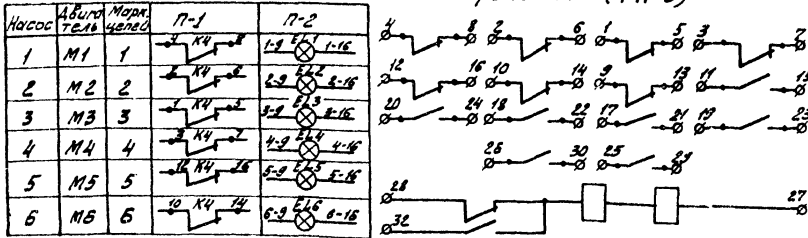 Насос Двигатель Марк. цепей П-1 П-2
1 М1 1 4 К4 8 1-9 EL1 1-16
2 М2 2 2 К4 6 2-9 EL2 2-16
3 М3 3 1 К4 5 3-9 EL3 3-16
4 М4 4 3 К4 7 4-9 EL4 4-16
5 М5 5 12 К4 16 5-9 EL5 5-16
6 М6 6 10 К4 14 6-9 EL6 6-16
4 8 2 6 1 5 3 7
12 16 10 14 9 13 11 15
20 24 18 22 17 21 19 23
26 30 25 29
28 27
32